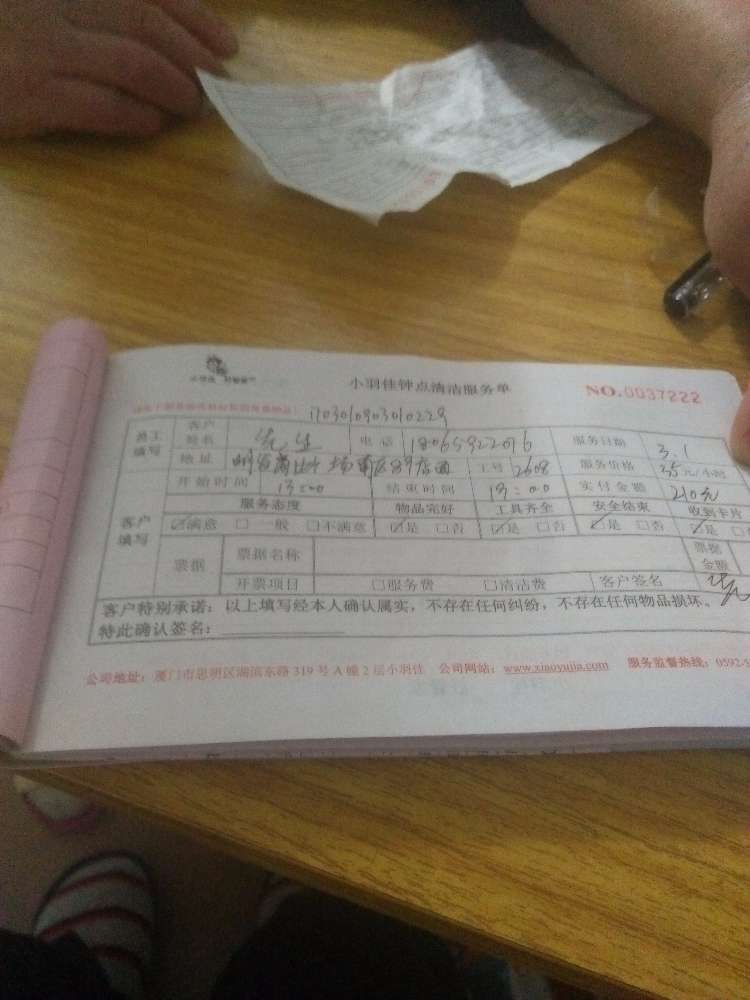 小羽佳钟点清洁服务单 NO.0037222
员工填写 客户姓名 先生 电话 18065922016 服务日期 3.1
地址 工号 2608 服务价格 35元/小时
开始时间 13:00 结束时间 19:00 实付金额 210元
客户填写 服务态度 物品完好 工具齐全 安全结束 收到卡片
☑满意 □一般 □不满意 ☑是 □否 ☑是 □否 ☑是 □否 ☑是
票据 票据名称 票据金额
开票项目 □服务费 □清洁费 客户签名
客户特别承诺：以上填写经本人确认属实，不存在任何纠纷，不存在任何物品损坏。
特此确认签名：
公司地址：厦门市思明区湖滨东路319号A幢2层小羽佳 公司网站：www.xiaoyujia.com 服务监督热线：0592-5